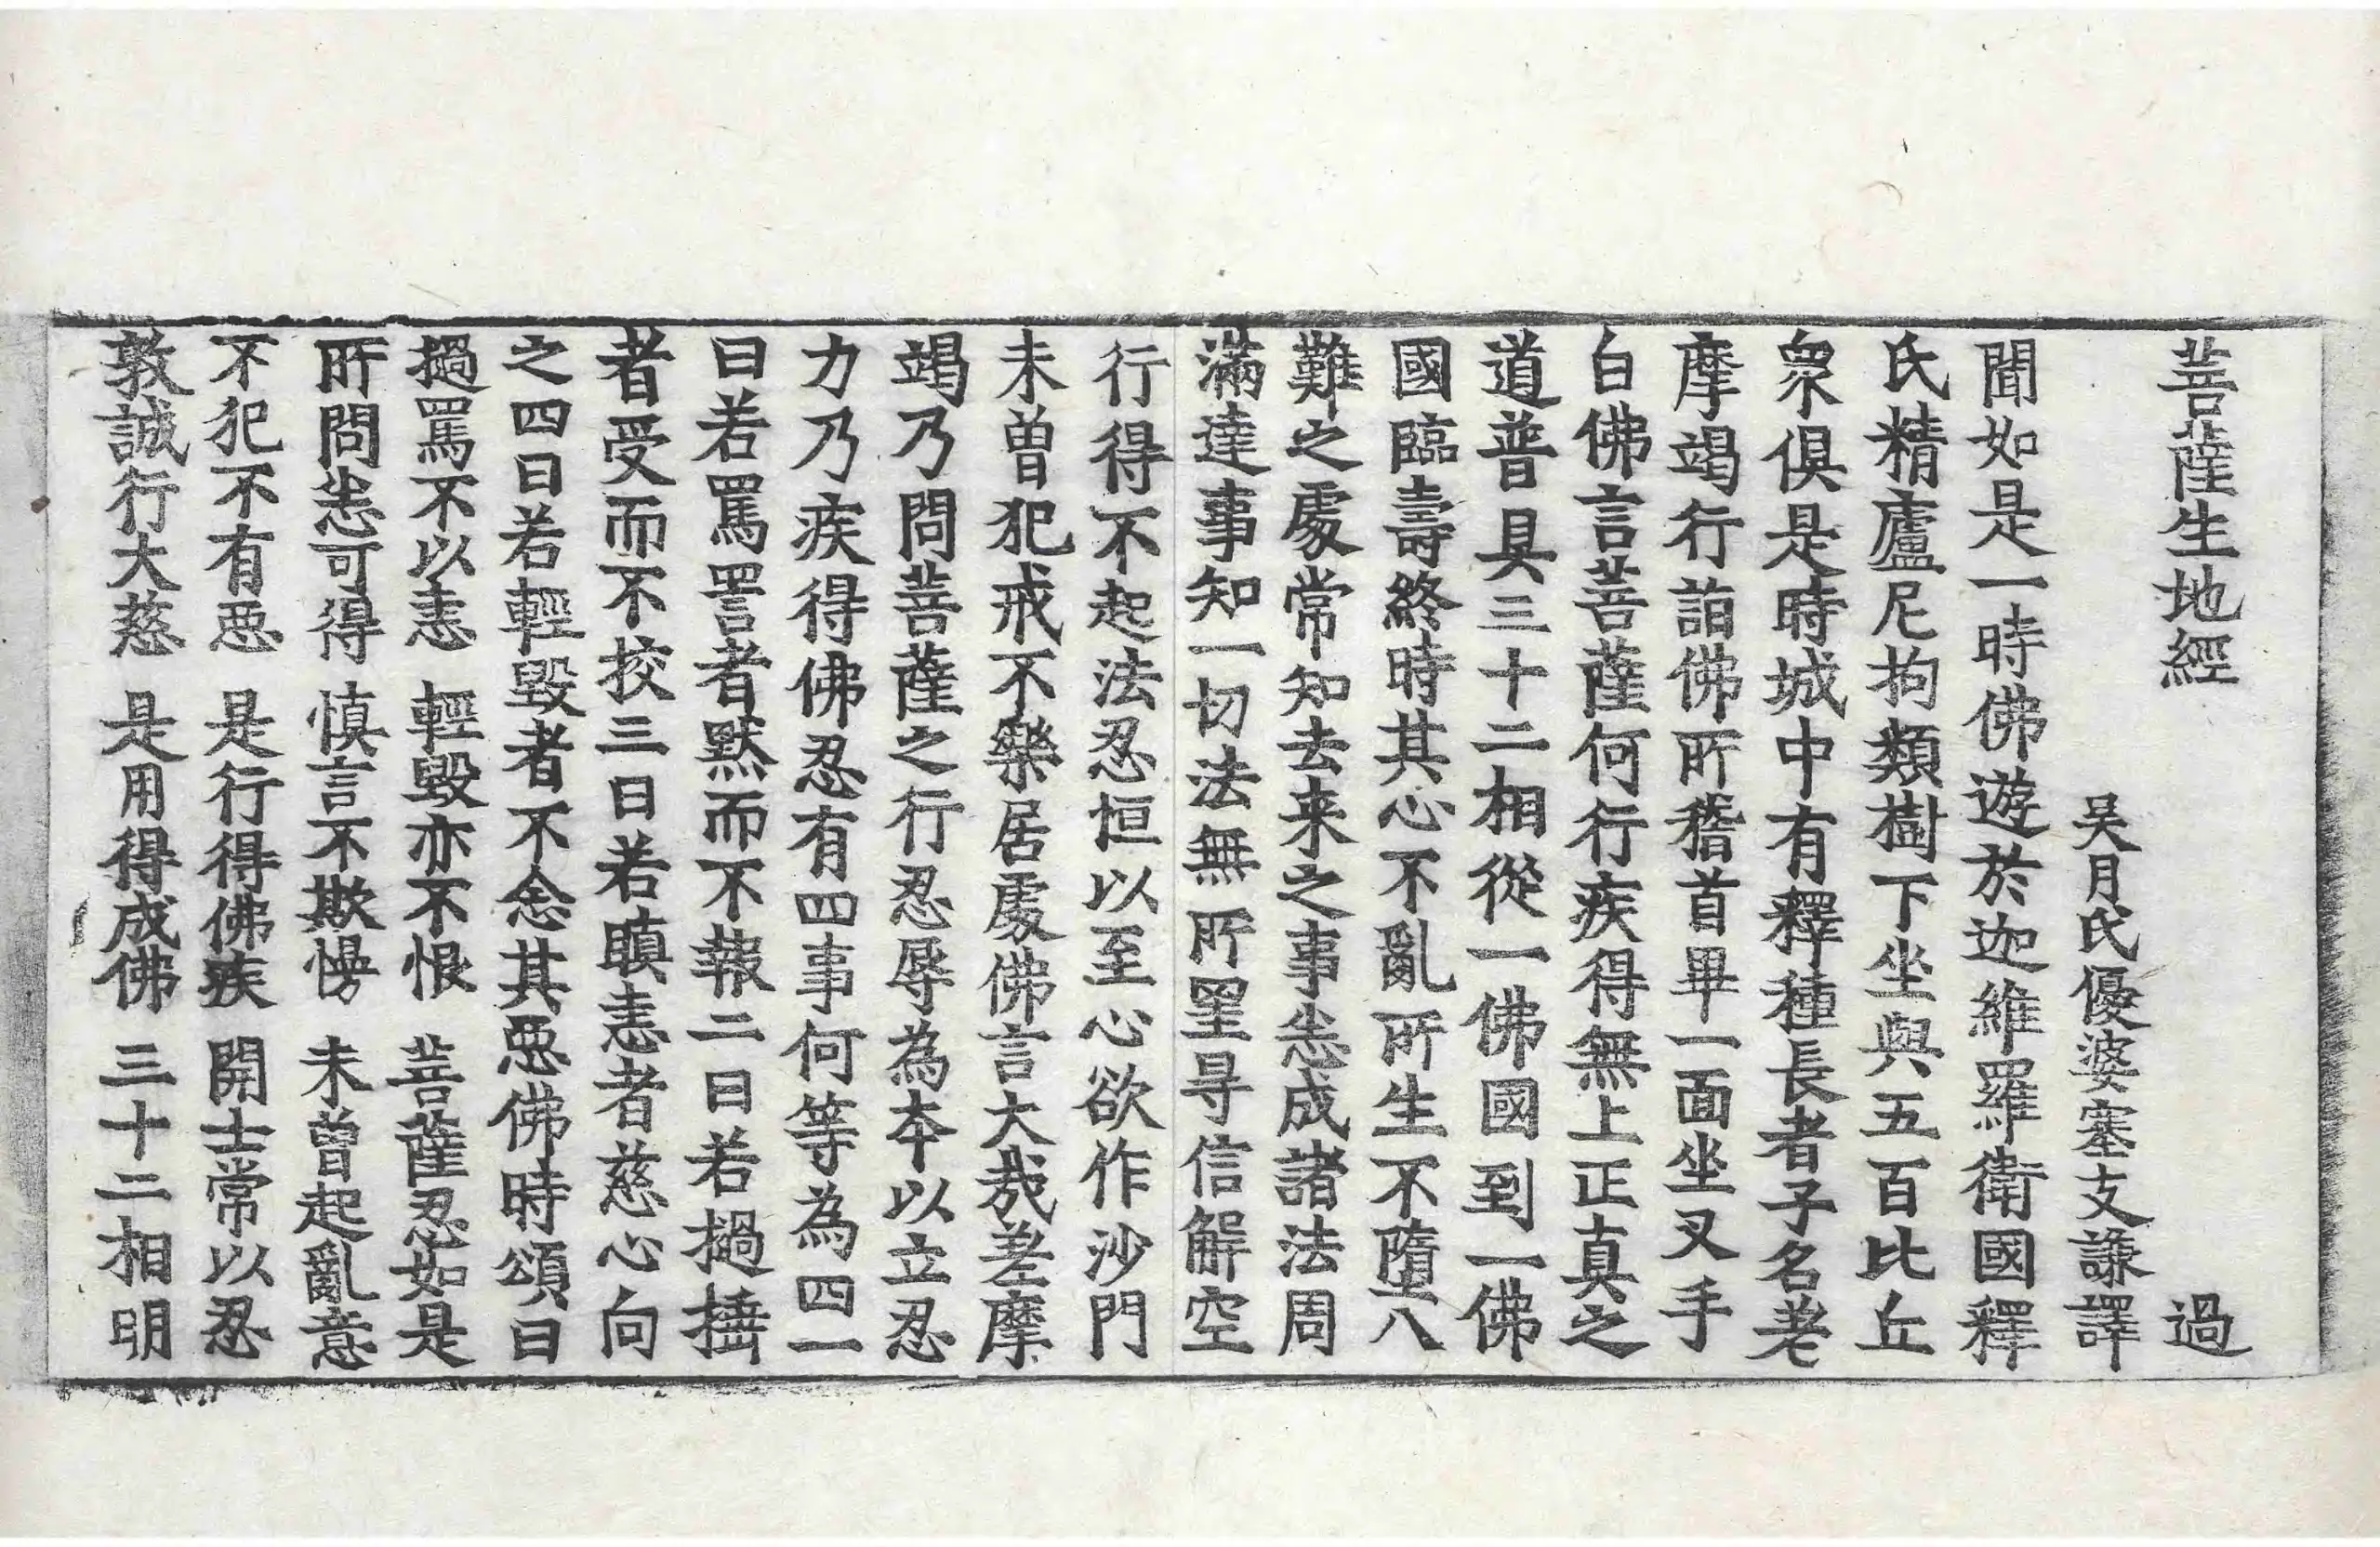 菩薩生地經 過
吴月氏優婆塞支謙譯
聞如是一時佛遊於迦維羅衛國釋
氏精廬尼拘類樹下坐與五百比丘
衆俱是時城中有釋種長者子名差
摩竭行詣佛所稽首畢一面坐叉手
白佛言菩薩何行疾得無上正真之
道普具三十二相從一佛國到一佛
國臨壽終時其心不亂所生不墮八
難之處常知去来之事悉成諸法周
滿達事知一切法無所罣导信解空
行得不起法忍恒以至心欲作沙門
未曽犯戒不樂居處佛言大哉差摩
竭乃問菩薩之行忍辱為本以立忍
力乃疾得佛忍有四事何等為四一
曰若罵詈者黙而不報二曰若撾捶
者受而不挍三曰若瞋恚者慈心向
之四曰若輕毀者不念其惡佛時頌曰
撾罵不以恚 輕毀亦不恨 菩薩忍如是
所問悉可得 慎言不欺慢 未曽起亂意
不犯不有惡 是行得佛疾 開士常以忍
敎誡行大慈 是用得成佛 三十二相明